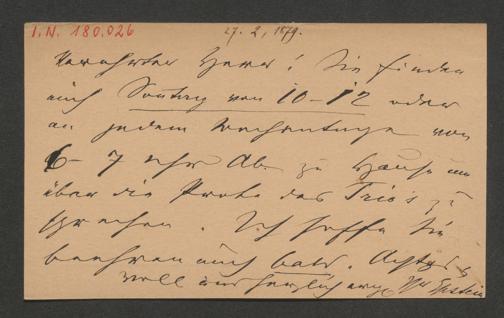 I.N. 180.026
27. 2. 1879.
Verehrter Herr! Sie finden
mich Sonntag von 10–12 oder
an jedem Wochentage von
6–7 Uhr Ab. zu Hause um
über die Probe des Trio's zu
sprechen. Ich hoffe Sie
beehren mich bald. Achtungs
voll und herzlich Epstein